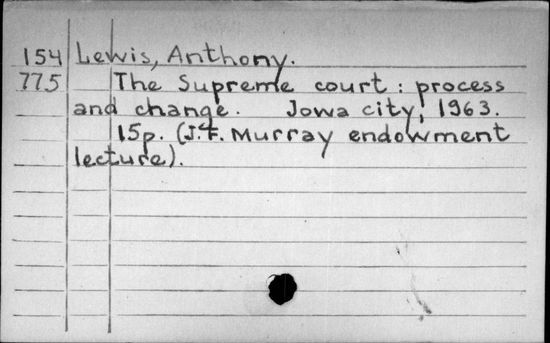 154 Lewis, Anthony.
775 The Supreme court : process
and change. Iowa city, 1963.
15p. (J.F. Murray endowment
lecture).